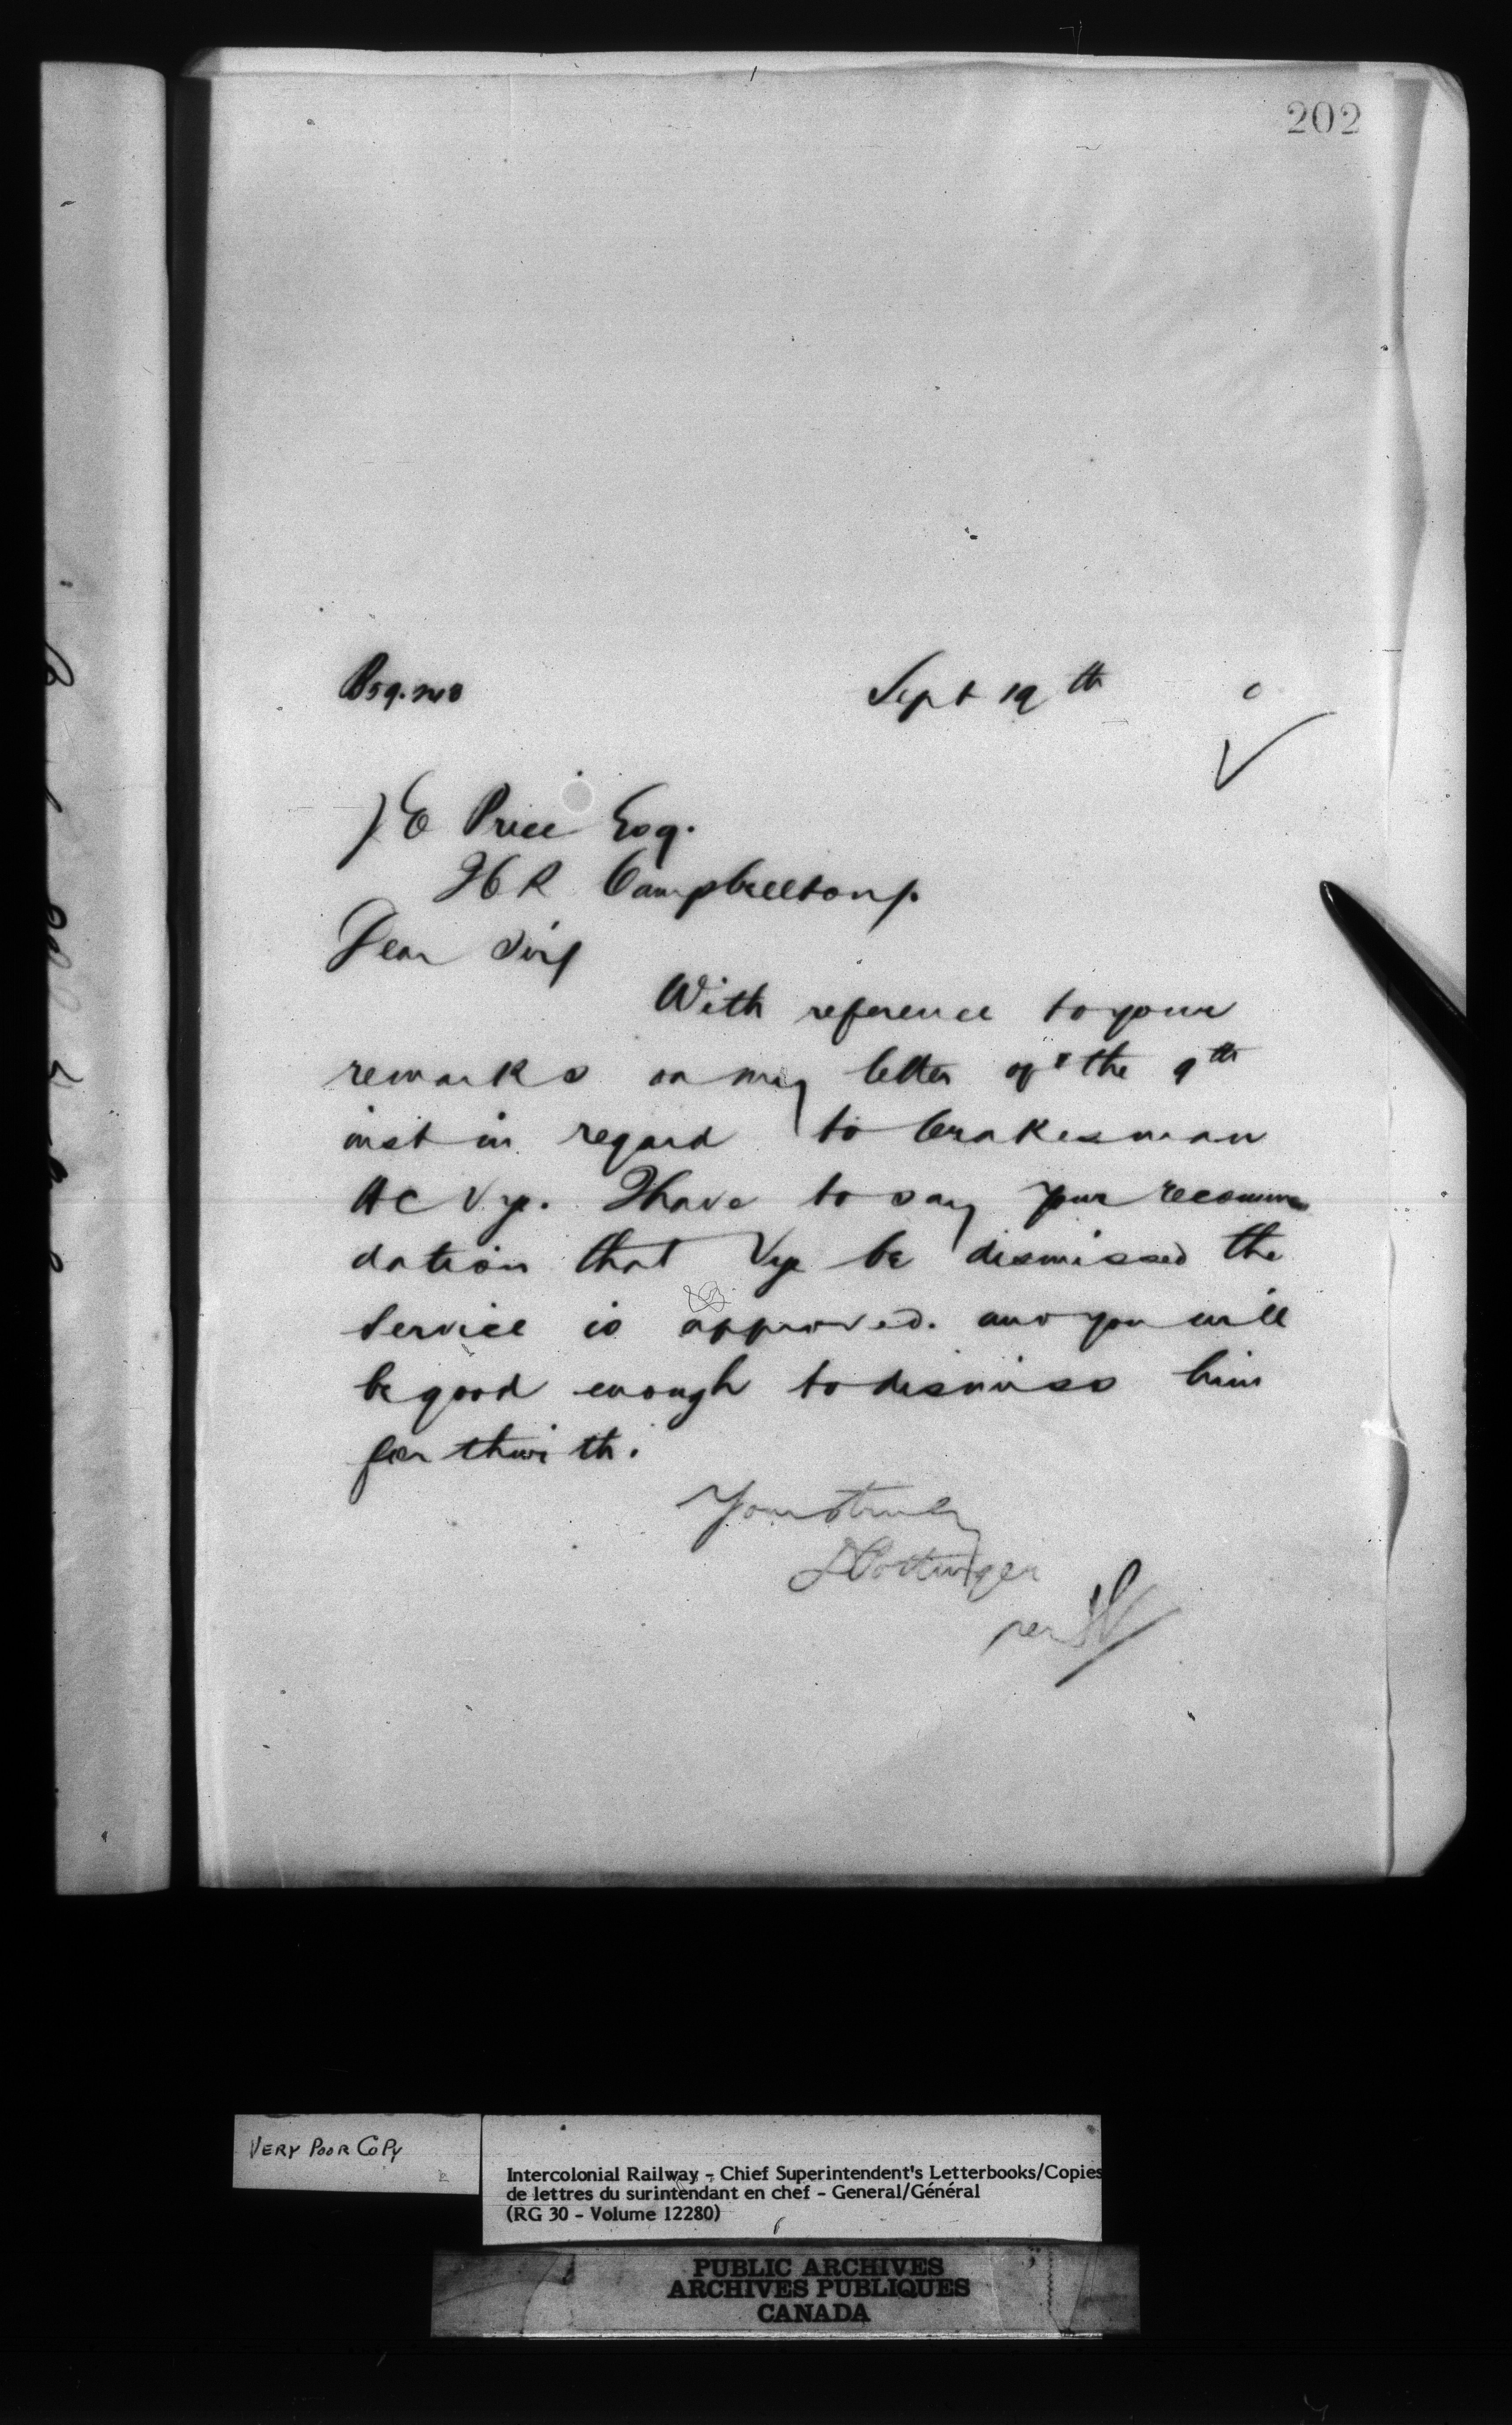 202
Sept 19th
J E Price Esq.
Campbellton
Dear Sir
With reference to your
remarks on my letter of the 9th
inst in regard to brakesman
Vye. I have to say your recommen
dation that Vye be dismissed the
service is approved. and you will
be good enough to dismiss him
forthwith.
Yours truly
D Pottinger
per
VERY POOR COPY
Intercolonial Railway - Chief Superintendent's Letterbooks/Copies
de lettres du surintendant en chef - General/Général
(RG 30 - Volume 12280)
PUBLIC ARCHIVES
ARCHIVES PUBLIQUES
CANADA